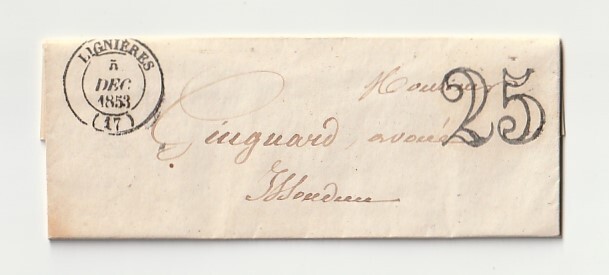 LIGNIÈRES
5
DEC
1853
(17)
25
Monsieur
Guignard, avoué
Issoudun